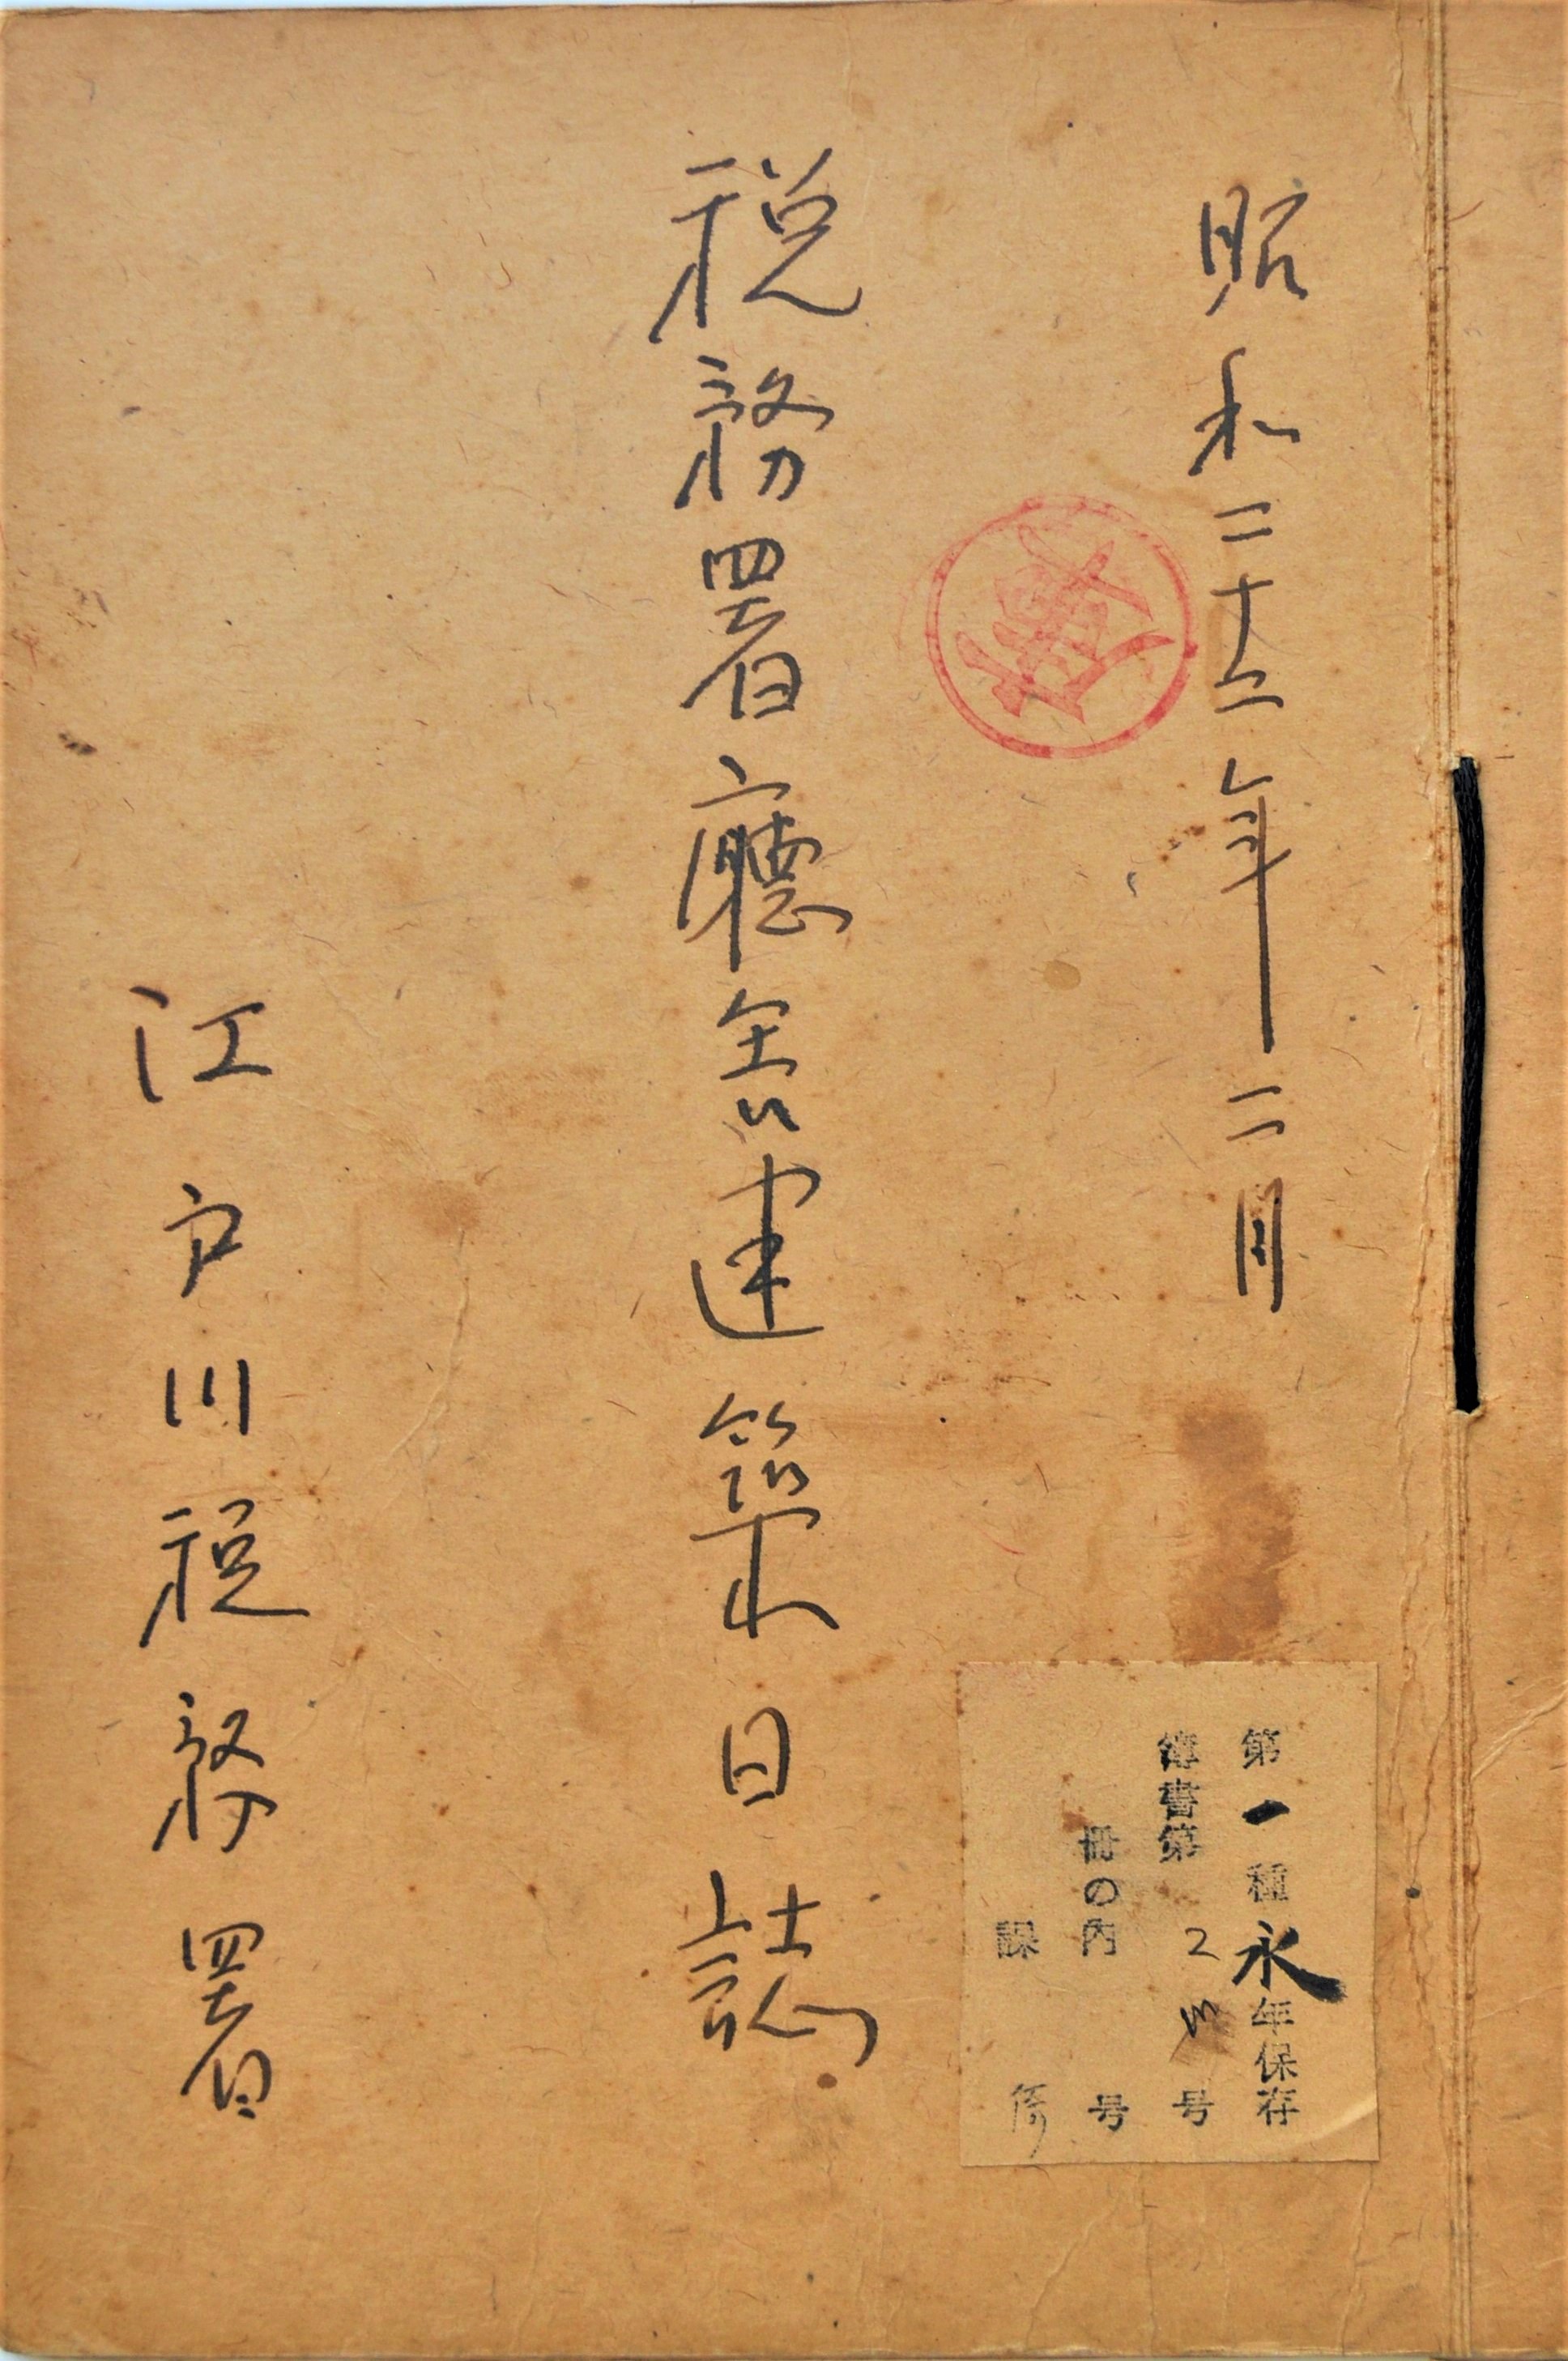 昭和二十三年二月
税務署廳舎建築日誌
江戸川税務署
第一種永年保存
簿書第2号
冊の内 号
課 係